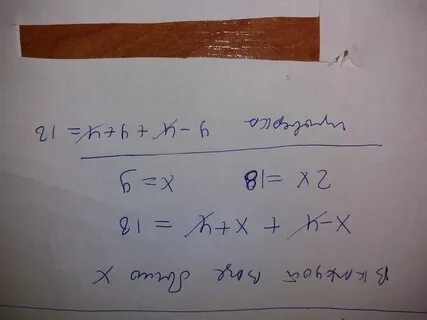 В каждой вазе было x
x - 4 + x + 4 = 18
2x = 18 x = 9
проверка 9 - 4 + 9 + 4 = 18